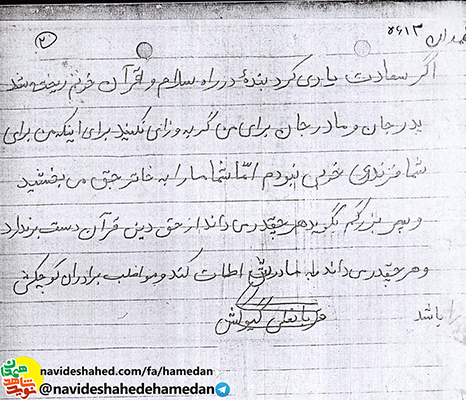 همدان ۵۶۱۳
۲
اگر سعادت یاری کرد بندهٔ در راه سلام و قرآن خونم ریخته شد
پدر جان و مادر جان برای من گریه وزاری نکنید برای اینکه من برای
شما فرزندی خوبی نبودم امّا شما مارا به خاتر حق می بخشید
و پسر بزرگم بگوید هر چقدر می داند از حق دین قرآن دست برندارد
و هر چقدر می داند به مادرش اطات کند و مواظب برادران کوچکش
را باشد
قربانعلی
navideshahed.com/fa/hamedan
@navideshahedehamedan